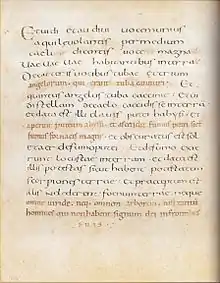 Et uidi et audiui uocem unius
aquile uolantis per medium
caeli dicentis uoce magna
Uae uae uae habitantibus in terra
De ceteris uocibus tubae et trium
angelorum qui erant tuba canituri
Et quintus angelus tuba cecinit Et ui
di stellam de caelo cecidisse in terra
et data est illi clauis putei habyssi et
aperuit puteum abyssi et ascendit fumus putei sicut
fumus fornacis magne et obscuratus est sol
et aer de fumo putei et de fumo
exierunt locustae in terra et data est
illis potestas sicut habent potestatem
scorpiones terrae et praeceptum est
illis ne lederent fenum terrae neque
omne uiride neq; omnem arborem nisi tantu
homines qui n habent signum dei in frontib;
suis